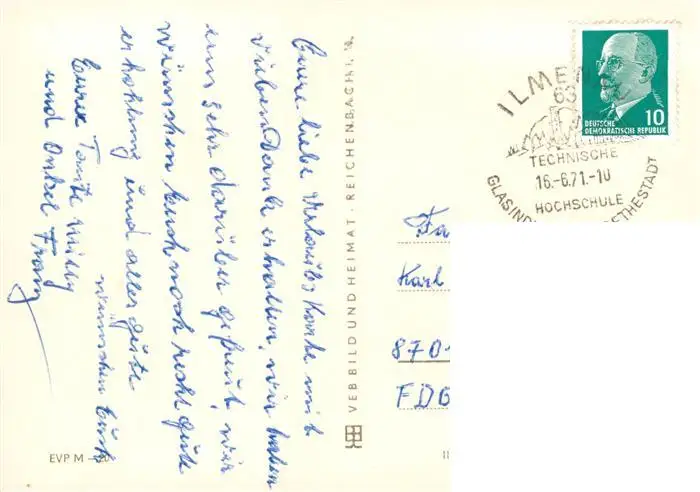 Eure liebe Urlaubs Karte mit
vielen Dank erhalten, wir haben
uns sehr darüber gefreut, wir
wünschen Euch noch recht gute
erholung und alles gute
wünschen Euch
Eure Tante Milly
und Onkel Franz
EVP M –,20
VEB BILD UND HEIMAT · REICHENBACH I. V.
ILME
63
TECHNISCHE
16.-6.71.-10
HOCHSCHULE
GLASIND ETHESTADT
10
DEUTSCHE
DEMOKRATISCHE REPUBLIK
Fa
Karl
8701
FDG
II